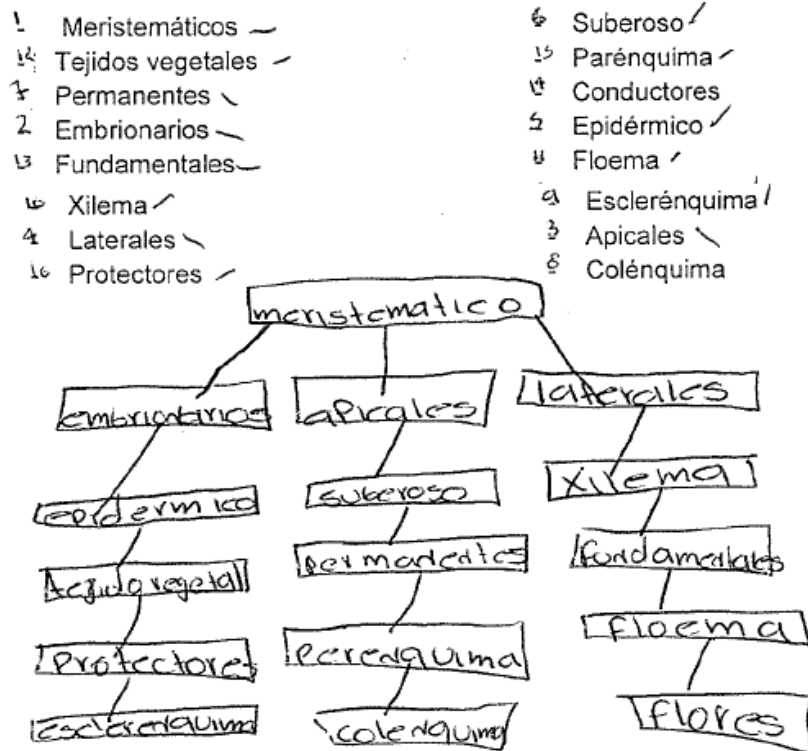 1 Meristemáticos
12 Tejidos vegetales
7 Permanentes
2 Embrionarios
13 Fundamentales
10 Xilema
4 Laterales
16 Protectores
6 Suberoso
15 Parénquima
14 Conductores
5 Epidérmico
11 Floema
9 Esclerénquima
3 Apicales
8 Colénquima
meristematico
embrionarios apicales laterales
epidermico suberoso xilema
tegido vegetal permanentes fundamentales
protectores perenquima floema
esclerenquima colenquima flores